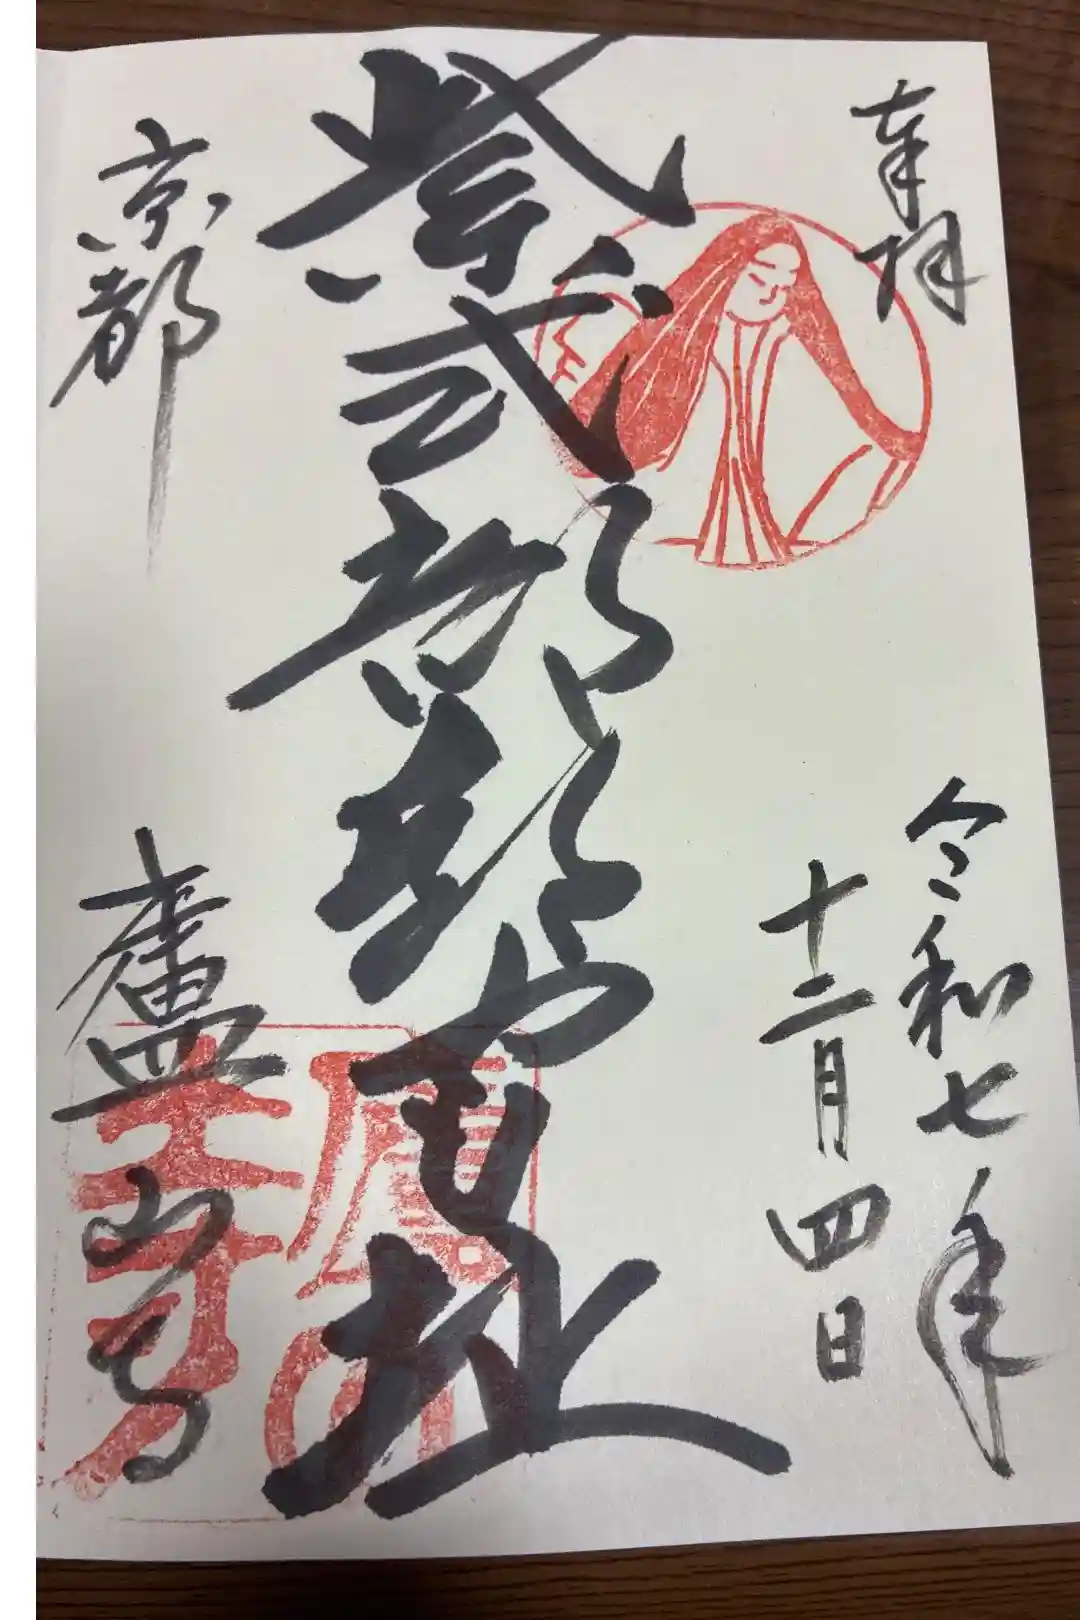 奉拝
令和七年
十二月四日
紫式部邸宅址
京都
廬山寺
廬山寺